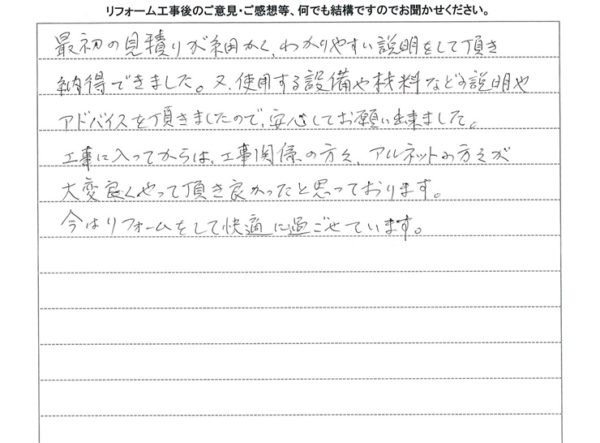 リフォーム工事後のご意見・ご感想等、何でも結構ですのでお聞かせください。
最初の見積りが細かく、わかりやすい説明をして頂き
納得できました。又、使用する設備や材料などの説明や
アドバイスを頂きましたので、安心してお願い出来ました。
工事に入ってからは、工事関係の方々、アルネットの方々が
大変良くやって頂き良かったと思っております。
今はリフォームをして快適に過ごせています。